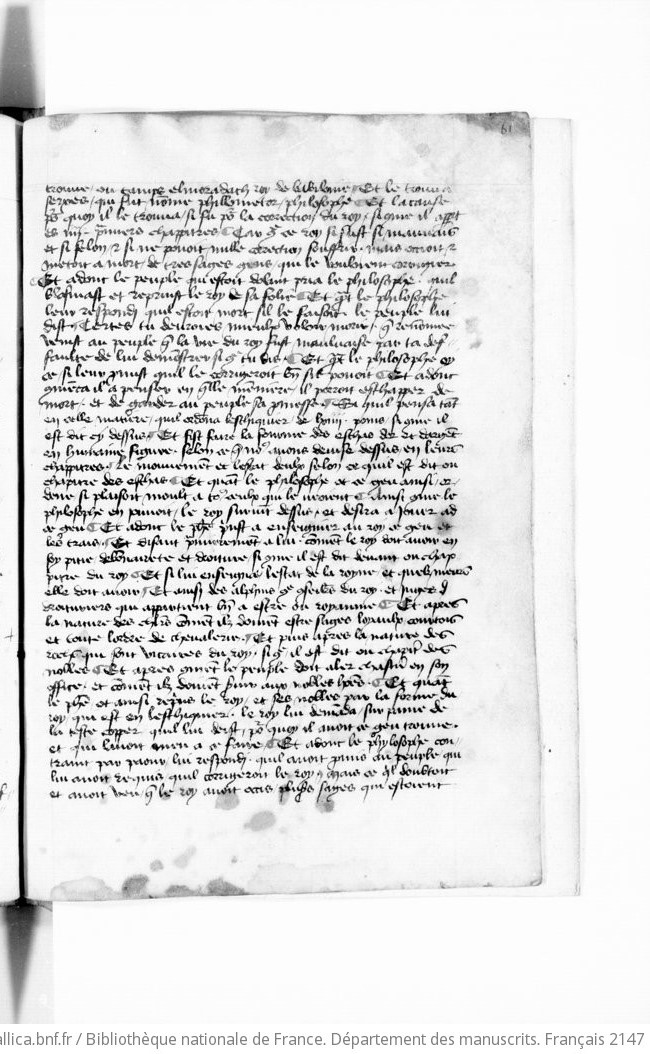 61
trouve / ou temps elmoradach roy de babiloine / Et le trouva
serpes / qui fut nōme philometor / philosophe Et la cause
pͦ quoy il le trouva / si fu pͦ la correction du roy / si que il appt
es iiii. pmiers chappitres Car q̄ ce roy si fust si mauvais
et si felon / ⁊ si ne pouoit nulle correction souffrir mais occioit ⁊
metoit a mort / de tres sages gens / qui le vouloient corrigier
Et adonc le peuple qui estoit dolant pria le philosophe quil
blasmast et reprinst le roy de sa folie Et qͣt le philosophe
leur respondi quil estoit mort sil le faisoit le peuple lui
dist Certes tu deuroies mieulx voloir morir / q̄ renōmee
venist au peuple q̄ la vie du roy fust mauluaise par ta def
faulte de lui demōstrer si q̄ tu dis Et qͣt le philosophe oy
ce si leur pmist quil le corrigeroit bn̄ sil pouoit Et adonc
cōmēca il a penser en q̄lle maniere / il porroit eschapper de
mort / et de garder au peuple sa pmesse Si quil pensa tāt
en celle matiere / quil ordōna leschiquier de lxiiii poins si que il
est dit cy dessus Et fist faire la fourme des eschas dor et dargēt
en humaine figure selon ce q̄ noꝰ auons deuise dessus en leurs
chappitres / Le mouuemēt et lestat deulx selon ce quil est dit ou
chapitre des eschas Et quāt le philosophe ot ce geu ainsi / or-
donē si plaisoit moult a toꝰ ceulx qui le veoient Ainsi que le
philosophe en jouoit / le roy suruint dessus / et desira a jouer ad
ce geu Et adonc le phē pnst a enseignier au roy ce geu et
les trais / Et disant pmieremēt a lui cōmēt le roy doit auoir en
soy pitie debōnairete et droiture / si que il est dit deuant ou chap
pitre du roy Et si lui enseigne lestat de la royne et quelz meurs
elle doit auoir / Et ainsi des alphins q̄ cōseilrs du roy / et juges
droituriers qui appartient bn̄ a estre ou royaume Et apres
la nature des chlrs cōmēt ilz doiuēt estre sages loyaulx courtois
et toute lordre de cheualerie / Et puis apres la nature des
rocs qui sont vicaires du roy / si q̄ il est dit ou chapitre des
nobles Et apres cōmēt le peuple doit aler chascū en son
office / et cōmēt ilz doiuēt suir aux nobles hōes Et quāt
le phē ot ainsi repns le roy / et ses nobles par la forme du
roy qui est en leschiquier le roy lui demāda / sur paine de
la teste copper quil lui deist / pͦ quoy il auoit ce geu trouue
et qui lauoit meu a ce faire Et adonc le phylosophe con-
traint par paour lui respondi quil auoit pmis au peuple qui
lui auoit requis quil corrigeroit le roy / mais ce quil doubtoit
et auoit veu / q̄ le roy auoit occis plusrs sages qui estoient
allica.bnf.fr / Bibliothèque nationale de France. Département des manuscrits. Français 2147